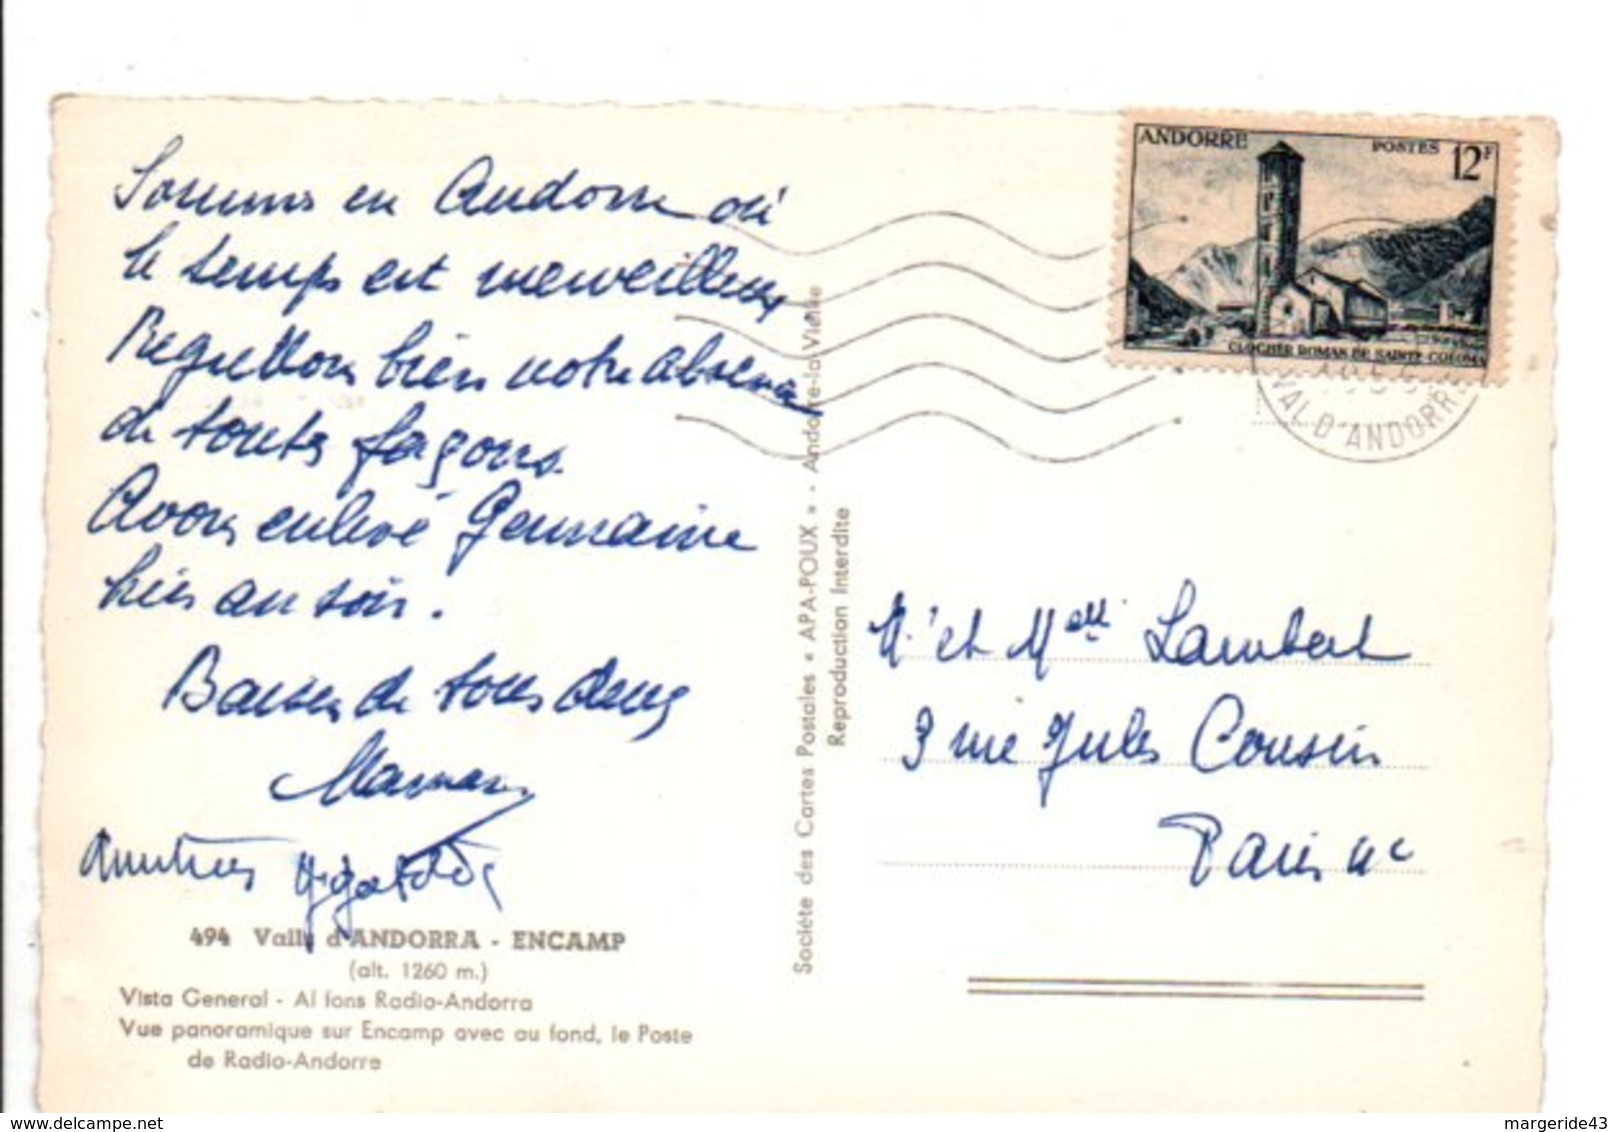 Sommes en Andorre où
le temps est merveilleux
Regrettons bien votre absence
de toutes façons.
Avons enlevé Germaine
hier au soir.
Baisers de tous deux
Maman
Amitiés
494 Valls d'ANDORRA - ENCAMP
(alt. 1260 m.)
Vista General - Al fons Radio-Andorra
Vue panoramique sur Encamp avec au fond, le Poste
de Radio-Andorre
Société des Cartes Postales « APA-POUX » - Andorre-la-Vieille
Reproduction Interdite
ANDORRE POSTES 12F
CLOCHER ROMAN DE SAINTE-COLOMA
VAL D'ANDORRE
M. et Melle Lambert
3 rue Jules Cousin
Paris 4e
delcampe.net
margeride43